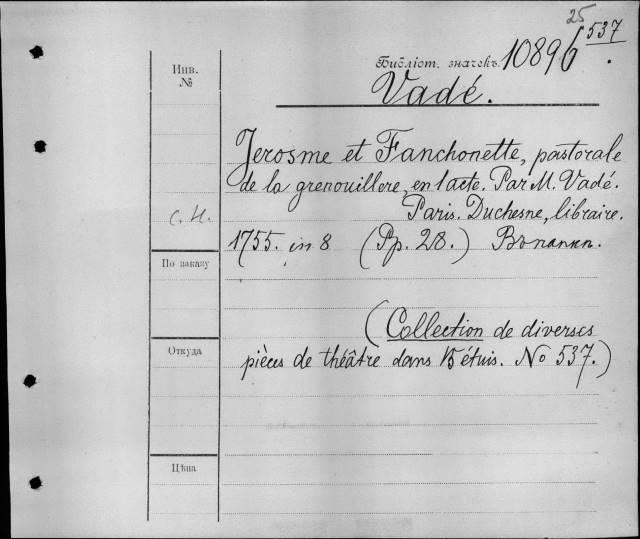 25
Библіот. значекъ 10896 537.
Инв. №
Vadé.
Jerosme et Fanchonette, pastorale
de la grenouillere, en 1 acte. Par M. Vadé.
Paris. Duchesne, libraire.
С. Н.
1755. in 8 (Pp. 28.) Въ папкп.
По заказу
(Collection de diverses
Откуда
pièces de théâtre dans 15 étuis. No 537.)
Цѣна